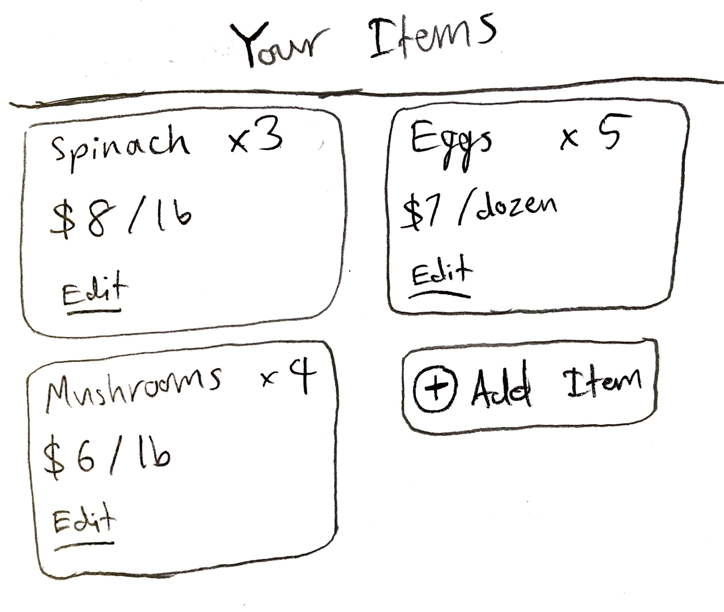 Your Items
Spinach x3
$8/lb
Edit
Eggs x 5
$7/dozen
Edit
Mushrooms x4
$6/lb
Edit
+ Add Item